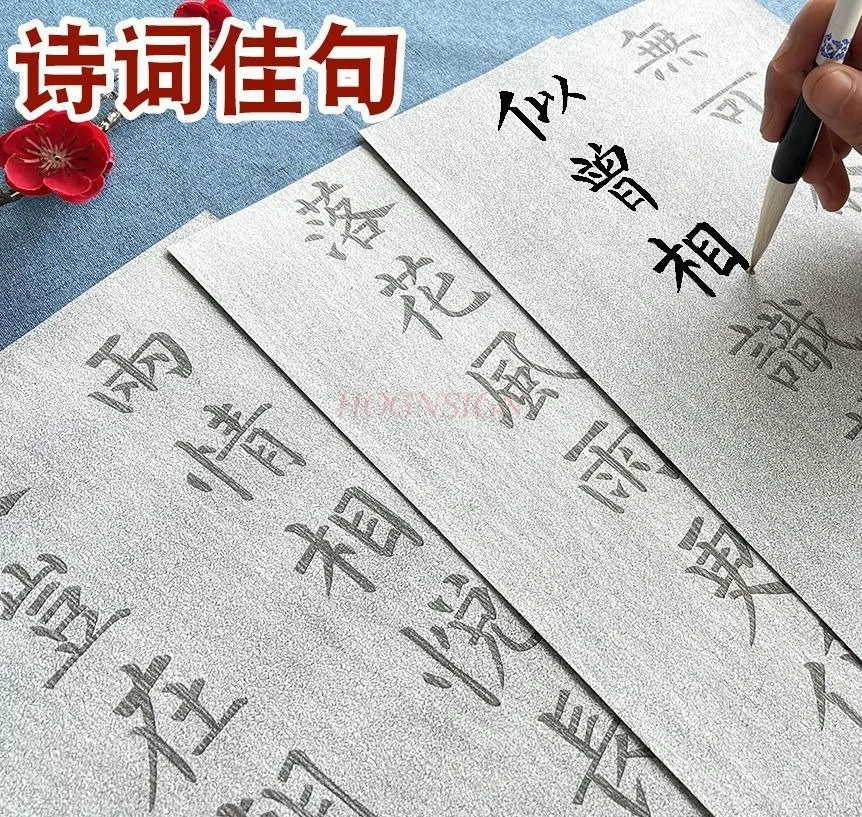 诗词佳句
無可
似曾相識
落花風雨更
兩情相悦長
豈在
HOGNSIGN